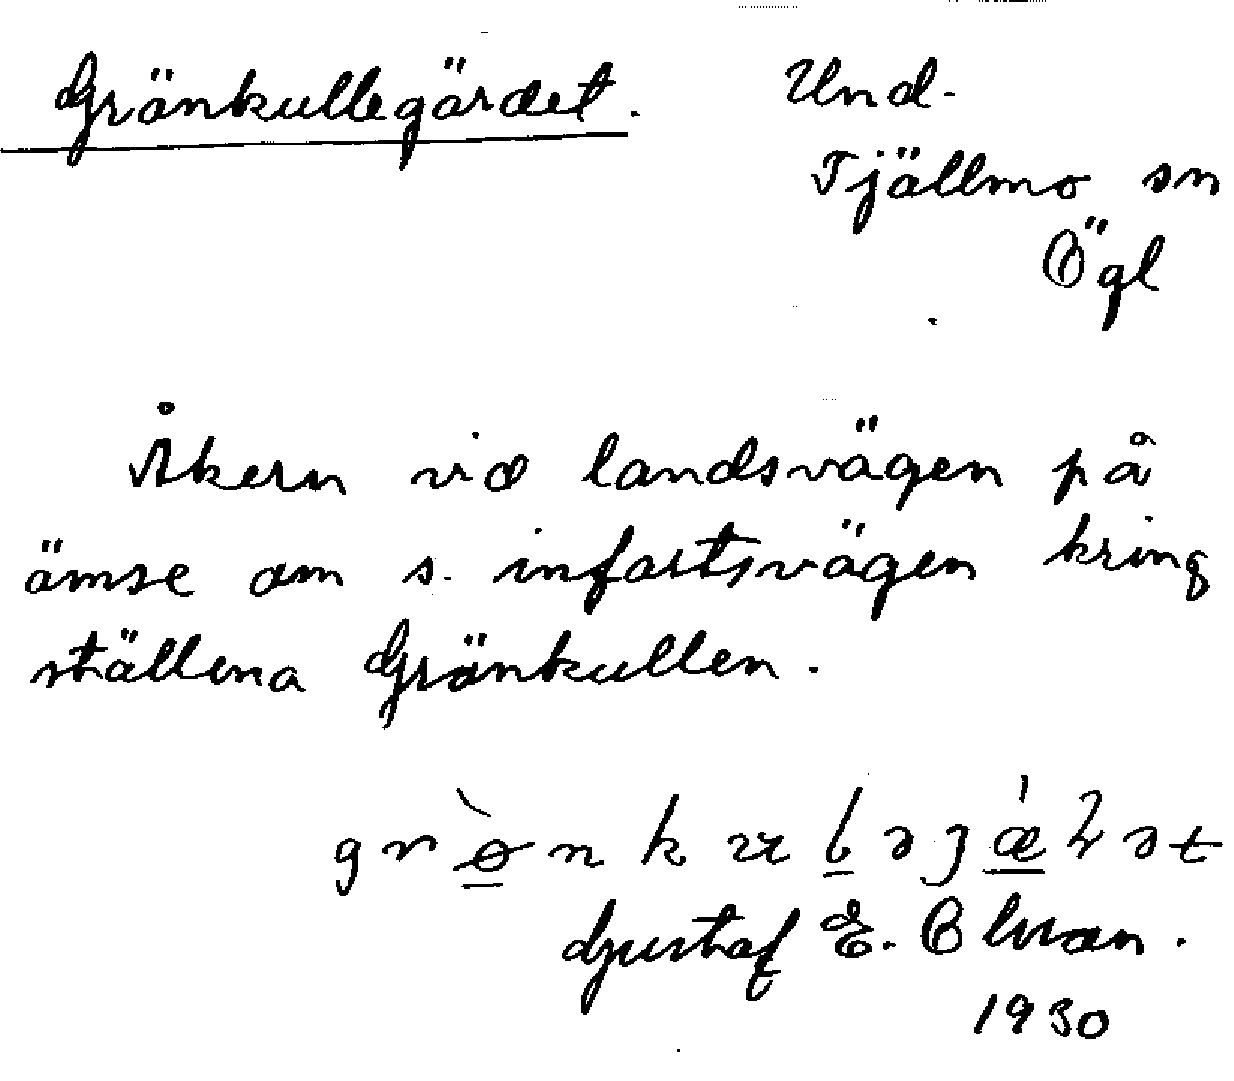 Gränkullegärdet. Und-
Tjällmo sn
Ögl
Åkern vid landsvägen på
ömse om s. infartsvägen kring
ställena Gränkullen.
Gustaf E. Olman.
1930